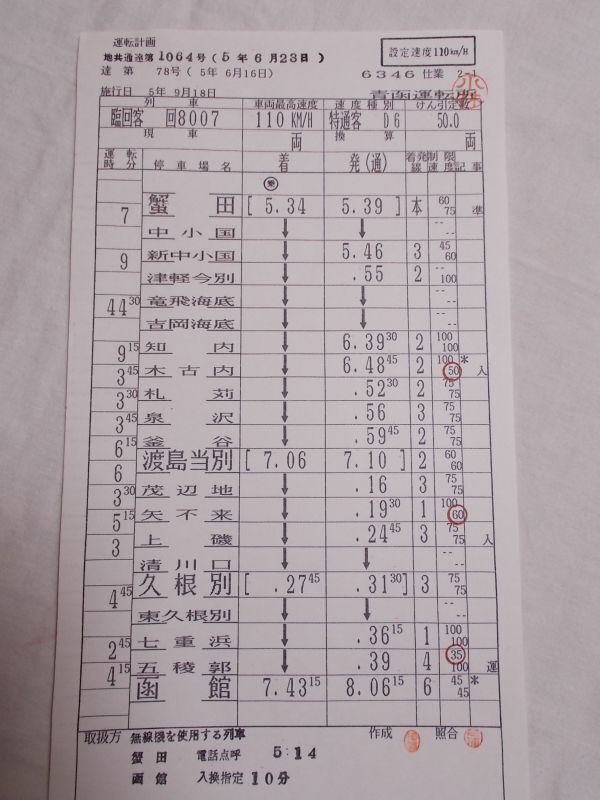 運転計画
地共通達第1064号(5年6月23日)
達第 78号(5年6月16日)
設定速度110km/H
6346仕業 2-1
施行日 5年9月18日 青函運転所
列車 車両最高速度 速度種別 けん引定数
臨回客 回8007 110KM/H 特通客 D6 50.0
現車 両 換算 両
運転時分 停車場名 着 発(通) 着発線 制限速度 記事
㋵
7 蟹田 [ 5.34 5.39 ] 本 60 75 準
中小国 ↓ ↓ -- --
9 新中小国 ↓ 5.46 3 45 60
津軽今別 ↓ .55 2 -- 100
44 30 竜飛海底 ↓ ↓ -- --
吉岡海底 ↓ ↓ -- --
9 15 知内 ↓ 6.39 30 2 100 100
3 45 木古内 ↓ 6.48 45 2 100 * 50 入
3 30 札苅 ↓ .52 30 2 75 75
3 45 泉沢 ↓ .56 3 75 75
6 15 釜谷 ↓ .59 45 2 75 75
6 渡島当別 [ 7.06 7.10 ] 2 60 60
3 30 茂辺地 ↓ .16 3 75 75
5 15 矢不来 ↓ .19 30 1 100 60
3 上磯 ↓ .24 45 3 75 75 入
清川口 ↓ ↓ -- --
4 45 久根別 [ .27 45 .31 30 ] 3 75 75
東久根別 ↓ ↓ -- --
2 45 七重浜 ↓ .36 15 1 100 100
4 15 五稜郭 ↓ .39 4 35 100 運
函館 7.43 15 8.06 15 6 45 45 *
取扱方 無線機を使用する列車 作成 照合
蟹田 電話点呼 5:14
函館 入換指定 10分